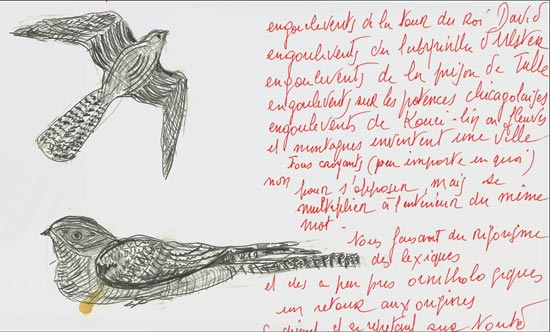 engoulevents à la tour du Roi David
engoulevents du labyrinthe d'Ulster
engoulevents de la prison de Tulle
engoulevents sur les potences chicagolaises
engoulevents de Kouei-lin où fleuves
et montagnes inventent une ville
Tous croyants (peu importe en quoi)
non pour s'opposer, mais se
multiplier à l'intérieur du même
mot.
Nous faisant du
des lexiques
et des à peu près ornithologiques
un retour aux origines
et se répétant sur